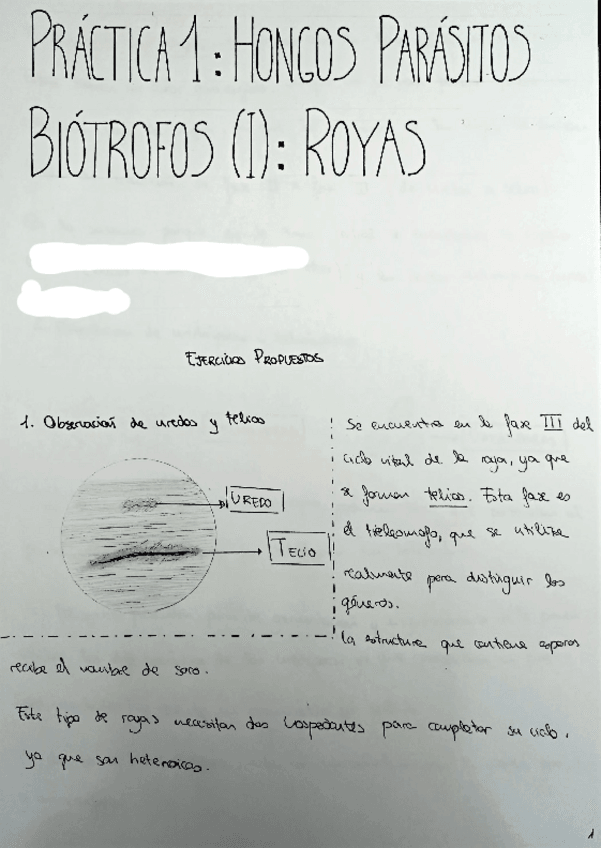 PRÁCTICA 1: HONGOS PARÁSITOS
BIÓTROFOS (I): ROYAS
EJERCICIOS PROPUESTOS
1. Observación de uredos y telios
UREDO
TELIO
Se encuentra en la fase III del
ciclo vital de la roya, ya que
se forman telios. Esta fase es
el teleomofo, que se utiliza
realmente para distinguir los
géneros.
La estructura que contiene esporas
recibe el nombre de soro.
Este tipo de royas necesitan dos hospedantes para completar su ciclo,
ya que son heteroicas.
1